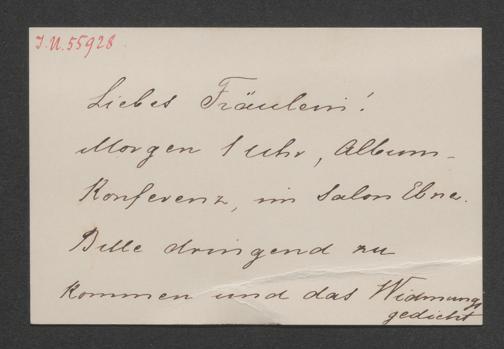 I.N.55928
Liebes Fräulein!
Morgen 1 Uhr, Album-
Konferenz, im Salon Ebner.
Bitte dringend zu
kommen und das Widmungs
gedicht